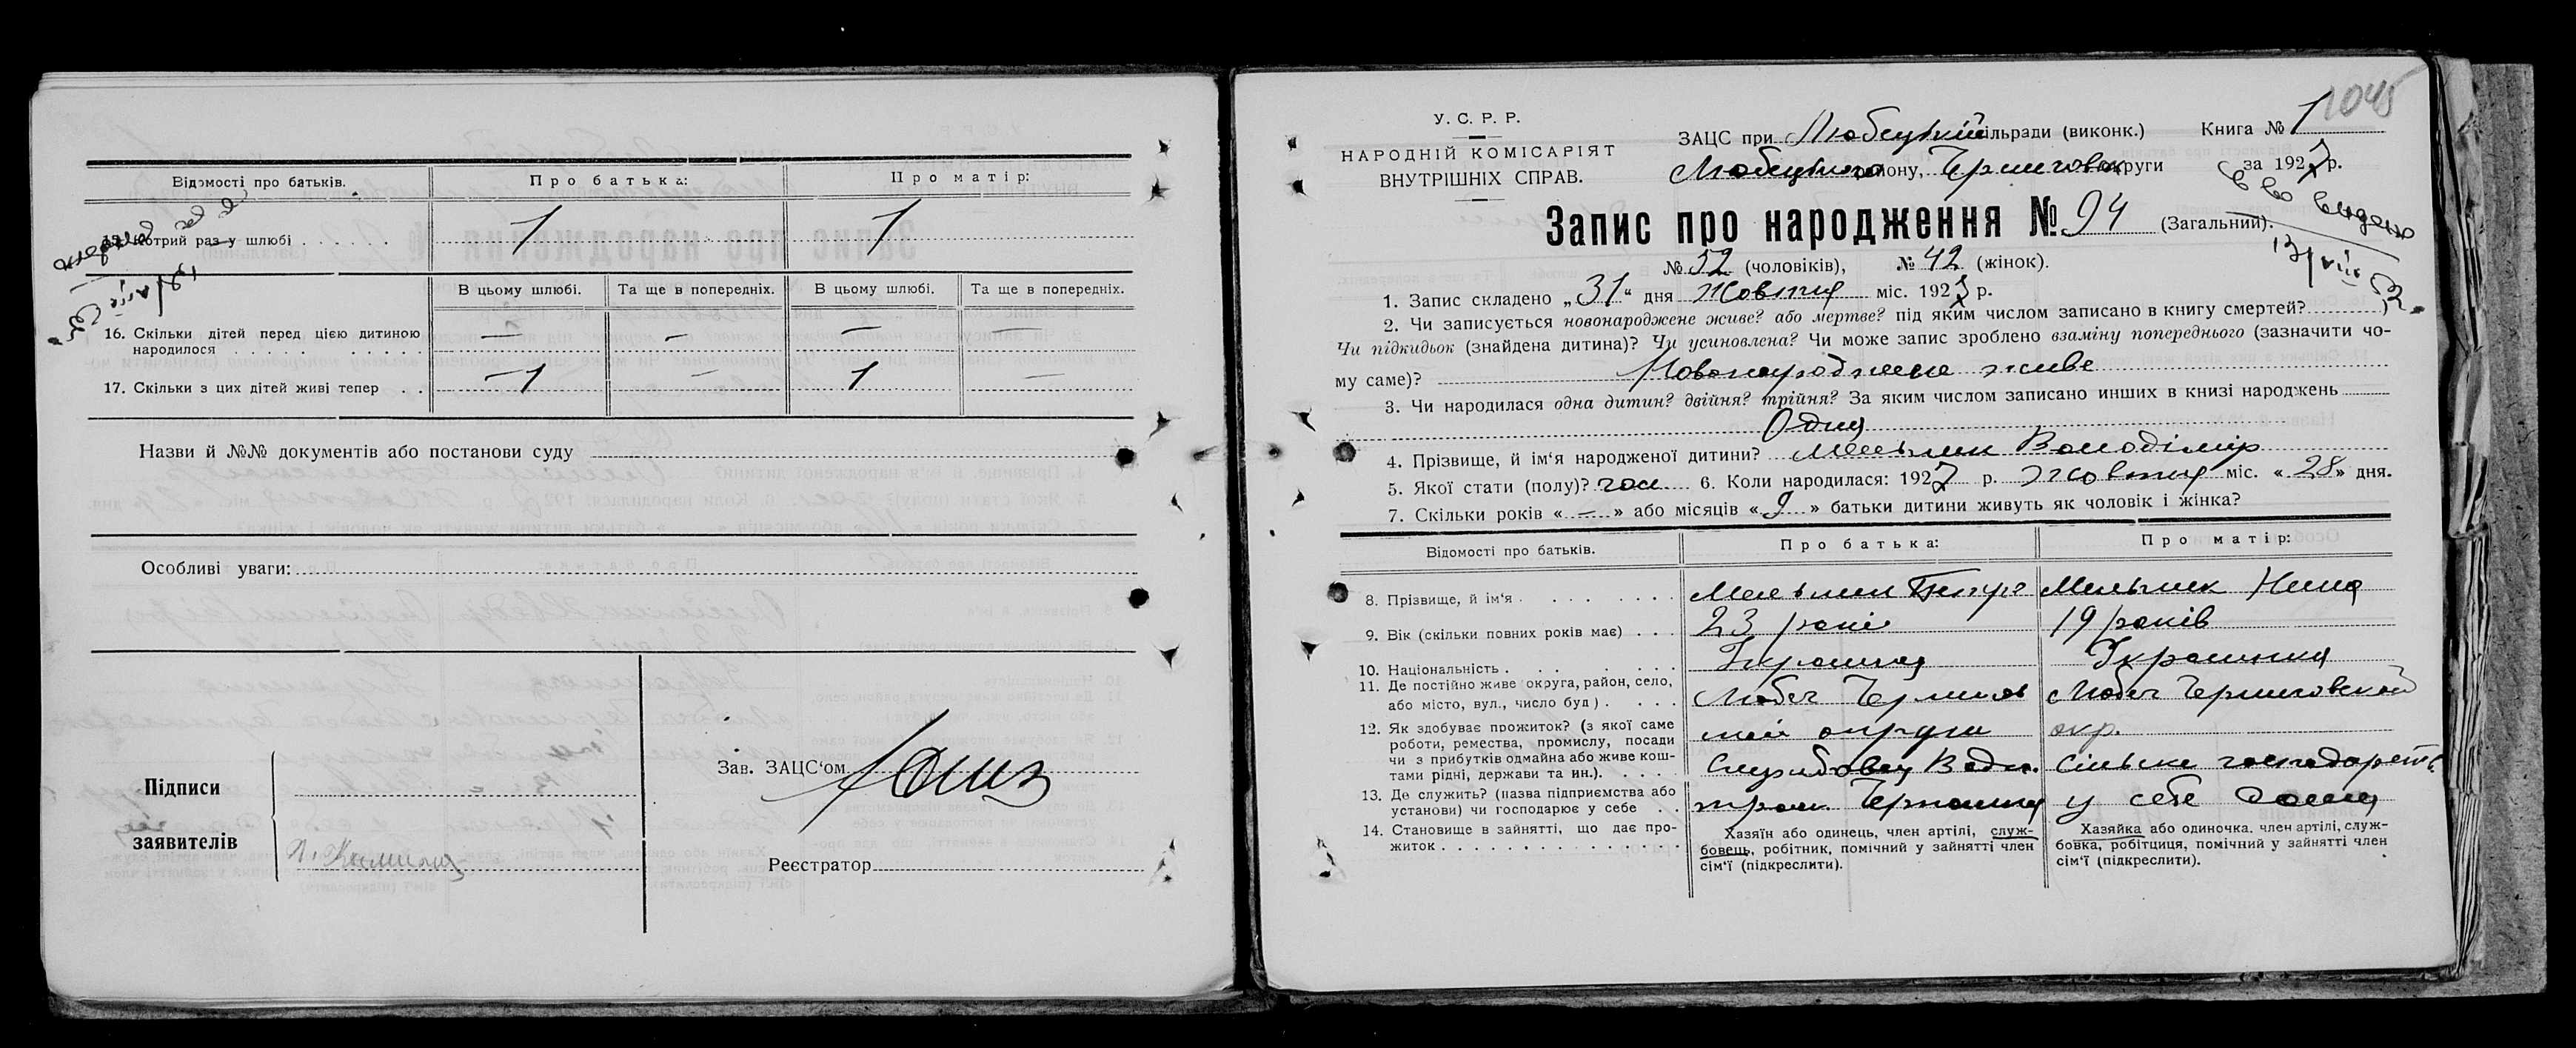 Відомості про батьків.
Про батька:
Про матір:
15. Котрий раз у шлюбі
1
1
В цьому шлюбі.
Та ще в попередніх.
В цьому шлюбі.
Та ще в попередніх.
16. Скільки дітей перед цією дитиною
народилося
—
—
—
—
17. Скільки з цих дітей живі тепер
1
—
1
—
Назви й №№ документів або постанови суду
Особливі уваги:
Підписи
заявителів
Зав. ЗАЦС‘ом
Реєстратор
1045
У. С. Р. Р.
НАРОДНІЙ КОМІСАРІЯТ
ВНУТРІШНІХ СПРАВ.
ЗАЦС при Любецькій сільради (виконк.)
Книга № 1
Любецького району, Черниговск округи
за 1927 р.
Запис про народження № 94 (Загальний).
№ 52 (чоловіків), № 42 (жінок).
1. Запис складено „31“ дня Жовтня міс. 1927 р.
2. Чи записується новонароджене живе? або мертве? під яким числом записано в книгу смертей?
Чи підкидьок (знайдена дитина)? Чи усиновлена? Чи може запис зроблено взаміну попереднього (зазначити чо-
му саме)? Новонароджене живе
3. Чи народилася одна дитин? двійня? трійня? За яким числом записано инших в книзі народжень
Одна
4. Прізвище, й ім‘я народженої дитини? Мельник Володімір
5. Якої стати (полу)? чол 6. Коли народилася: 1927 р. Жовтня міс. «28» дня.
7. Скільки років «—» або місяців «9» батьки дитини живуть як чоловік і жінка?
Відомості про батьків.
Про батька:
Про матір:
8. Прізвище, й ім‘я
Мельник Петро
Мельник Нина
9. Вік (скільки повних років має)
23 роки
19 років
10. Національність
Украинка
11. Де постійно живе округа, район, село,
або місто, вул., число буд)
Любеч Чернигов
Любеч Черниговской
12. Як здобуває прожиток? (з якої саме
роботи, ремества, промислу, посади
чи з прибутків одмайна або живе кош-
тами рідні, держави та ин.).
округи
окр.
Службовец
Сільске господарств
13. Де служить? (назва підприємства або
установи) чи господарює у себе
у себе дома
14. Становище в зайнятті, що дає про-
житок
Хазяїн або одинець, член артілі, служ-
бовець, робітник, помічний у зайнятті член
сім‘ї (підкреслити).
Хазяйка або одиночка. член артілі, служ-
бовка, робітниця, помічний у зайнятті член
сім‘ї (підкреслити).